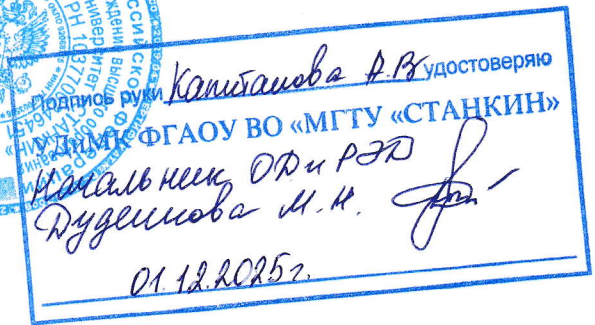 Подпись руки Капитанова А.В. удостоверяю
УДиМК ФГАОУ ВО «МГТУ «СТАНКИН»
Начальник ОДиРЭД
Дуденкова М.Н.
01.12.2025г.